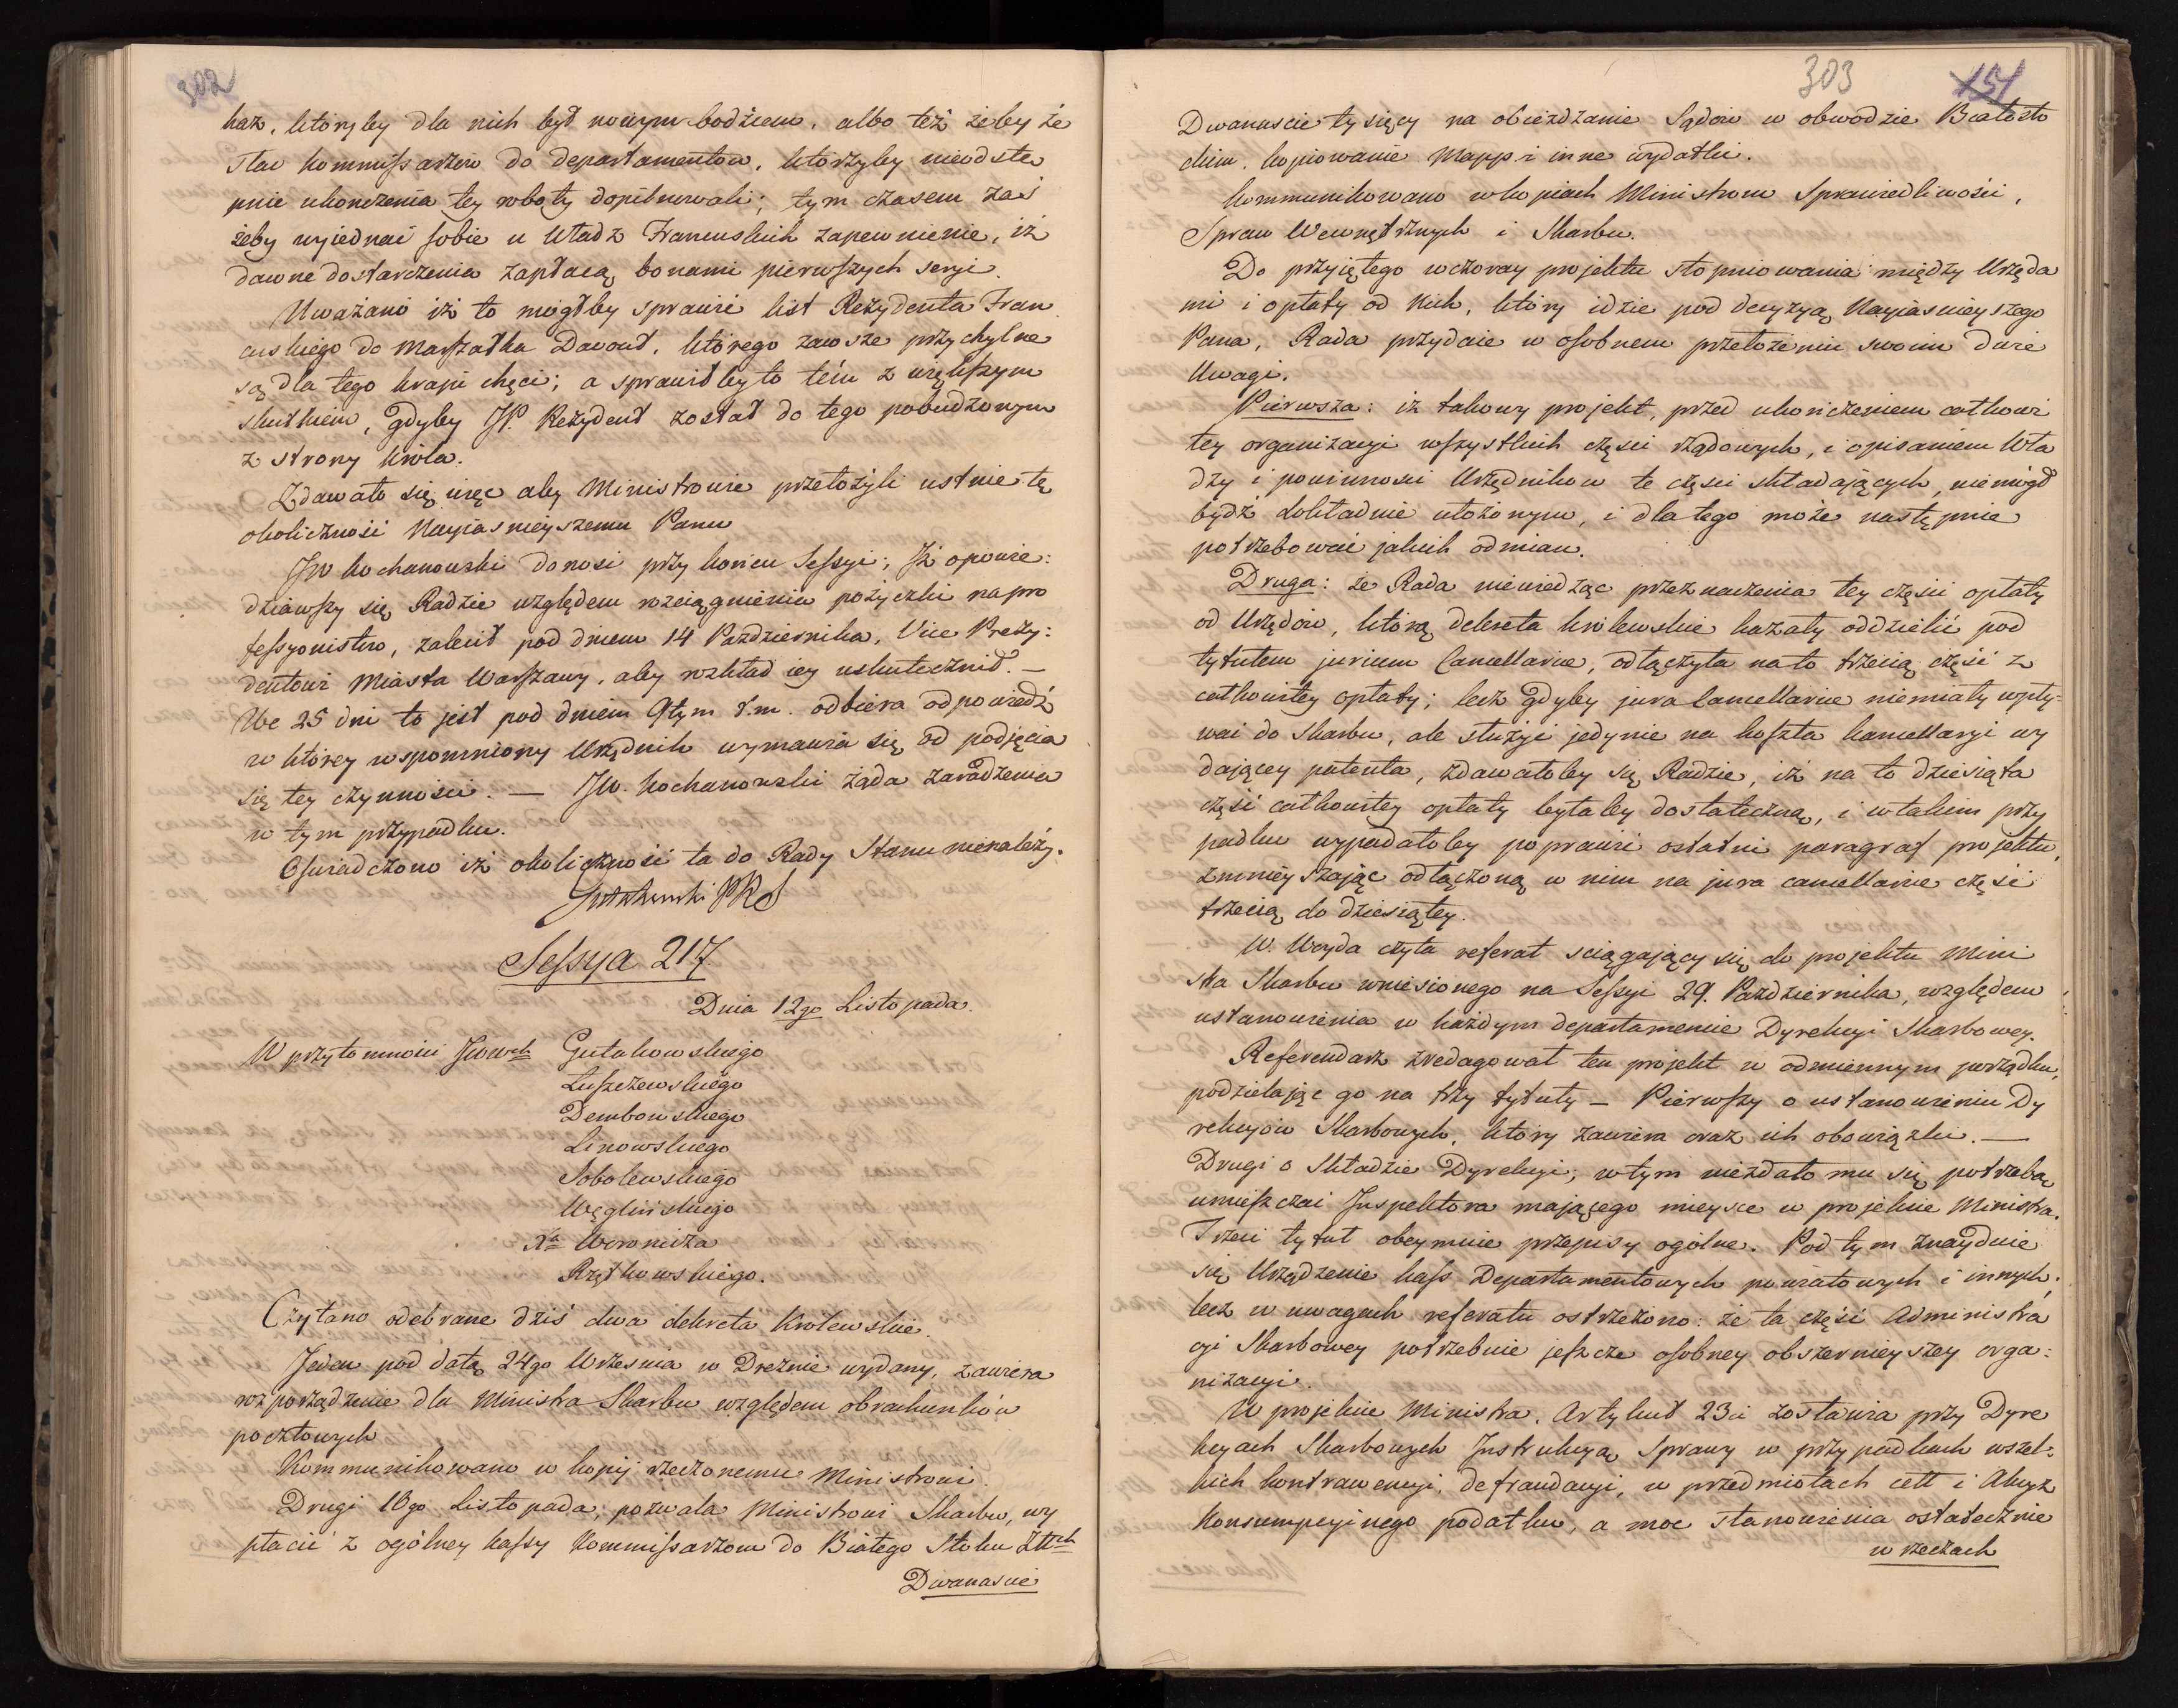 302
kaz, któryby dla nich był nowym bodźcem, albo też żeby ze
słać kommissarzów do departamentów, którzyby nieodstę
pnie ukończenia tey roboty dopilnowali; tym czasem zaś
żeby wyiednać sobie u Władz Francuskich zapewnienie, iż
dawne dostarczenia zapłacą bonami pierwszych seryi.
Uważano iż to mógłby sprawić list Rezydenta Fran
cuskiego do Marszałka Davout, którego zawsze przychylne
są dla tego kraju chęci; a sprawiłby to tém z większym
skutkiem, gdyby JP. Rezydent został do tego pobudzonym
z strony Króla.
Zdawało się więc aby Ministrowie przełożyli ustnie tę
okoliczność Nayiaśnieyszemu Panu
JW Kochanowski donosi przy końcu Sessyi; Iż opowie:
dziawszy się Radzie względem rozciągnienia pożyczki na pro
fessyonistów, zalecił pod dniem 14 Pazdziernika, Vice Prezy:
dentowi Miasta Warszawy, aby rozkład iey uskutecznił. —
We 25 dni to jest pod dniem 9tym t.m. odbiera odpowiedź
w którey wspomniony Urzędnik wymawia się od podjęcia
się tey czynności. — JW. Kochanowski żąda zaradzenia
w tym przypadku.
Oświadczono iż okoliczność ta do Rady Stanu nienależy.
Gutakowski PRS
Sessya 217.
Dnia 12go Listopada.
W przytomności JWWch Gutakowskiego
Łuszczewskiego
Dembowskiego
Linowskiego
Sobolewskiego
Węglińskiego
Xa Woronicza
Rzętkowskiego.
Czytano odebrane dziś dwa dekreta Królewskie.
Jeden pod datą 24go Września w Dreznie wydany, zawiera
rozporządzenie dla Ministra Skarbu względem obrachunków
pocztowych
Kommunikowano w kopij rzeczonemu Ministrowi.
Drugi 10go Listopada, pozwala Ministrowi Skarbu, wy
płacić z ogólney kassy Kommissarzom do Białego Stoku Złtch
Dwanaście
303
151
Dwanaście tysięcy na obieżdżanie Sądów w obwodzie Białosto
ckim, kopiowanie Mapp i inne wydatki.
Kommunikowano w kopiach Ministrom Sprawiedliwości,
Spraw Wewnętrznych i Skarbu.
Do przyiętego wczoray projektu stopniowania między Urzęda
mi i opłaty od Nich, który idzie pod decyzyą Nayiaśnieyszego
Pana, Rada przydaie w osobnem przełożeniu swoim dwie
Uwagi.
Pierwsza: iż takowy projekt, przed ukończeniem całkowi
tey organizacyi wszystkich części rządowych, i opisaniem Wła
dzy i powinności Urzędników te części składających, niemógł
bydź dokładnie ułożonym, i dla tego może następnie
potrzebować jakich odmian.
Druga: że Rada niewiedząc przeznaczenia tey części opłaty
od Urzędów, którą dekreta królewskie kazały oddzielić pod
tytułem jurium Cancellariae, odłączyła na to trzecią część z
całkowitey opłaty; lecz gdyby jura Cancellariae niemiały wpły-
wać do Skarbu, ale służyć jedynie na koszta kancellaryi wy
dającey patenta, zdawałoby się Radzie, iż na to dziesiąta
część całkowitey opłaty byłaby dostateczną, i w takim przy
padku wypadałoby poprawić ostatni paragraf projektu,
zmnieyszając odłączoną w nim na jura cancellariae część
trzecią do dziesiątey.
W. Woyda czyta referat ściągający się do projektu Mini
stra Skarbu wniesionego na Sessyi 29. Pazdziernika, względem
ustanowienia w każdym departamencie Dyrekcyi Skarbowey.
Referendarz zredagował ten projekt w odmiennym porządku,
podzielając go na trzy tytuły — Pierwszy o ustanowieniu Dy
rekcyów Skarbowych, który zawiera oraz ich obowiązki. —
Drugi o Składzie Dyrekcyi; w tym niezdało mu się potrzebą
umieszczać Inspektora mającego mieysce w projekcie Ministra.
Trzeci tytuł obeymuie przepisy ogólne. Pod tym znayduie
się Urządzenie kass Departamentowych powiatowych i innych;
lecz w uwagach referatu ostrzeżono: że ta część Administra
cyi Skarbowey potrzebuie jeszcze osobney obszernieyszey orga:
nizacyi.
W projekcie Ministra, Artykuł 23ci zostawia przy Dyre
kcyach Skarbowych Instrukcyą Sprawy w przypadkach wszel-
kich kontrawencyi, defraudacyi, w przedmiotach ceł i Akcyz
Konsumpcyinego podatku, a moc stanowienia ostatecznie
w rzeczach